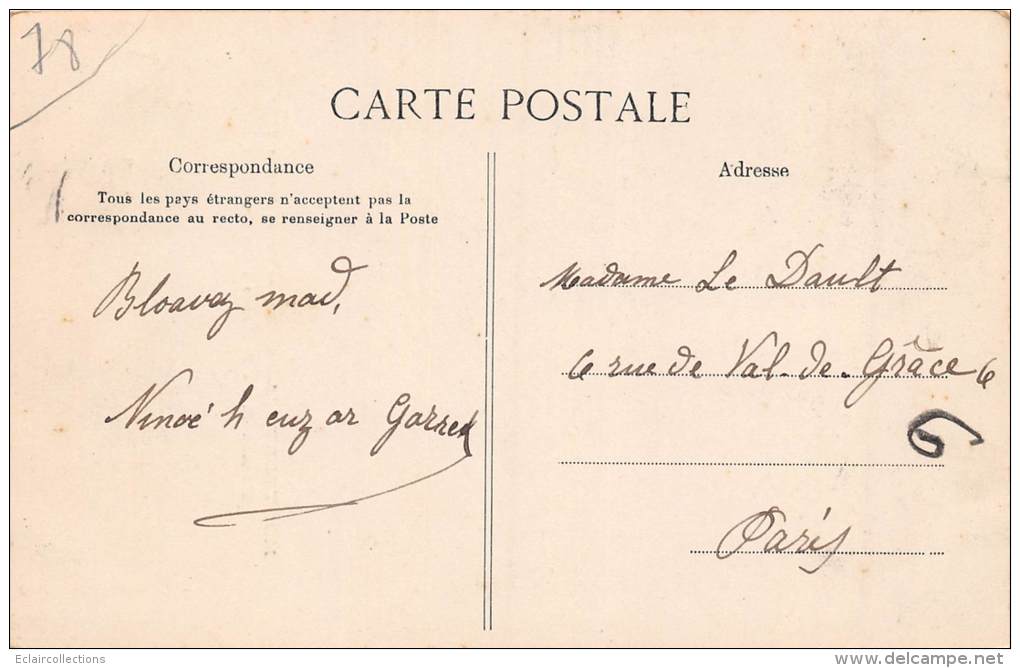 78
CARTE POSTALE
Correspondance
Tous les pays étrangers n'acceptent pas la
correspondance au recto, se renseigner à la Poste
Bloavez mad,
Ninoé h euz ar Garrek
Adresse
Madame Le Dault
6 rue de Val-de-Grâce 6
6
Paris
Eclaircollections
www.delcampe.net